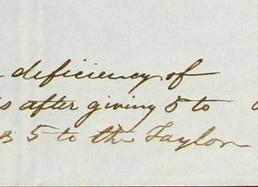 deficiency of
after giving 5 to
5 to the Taylor